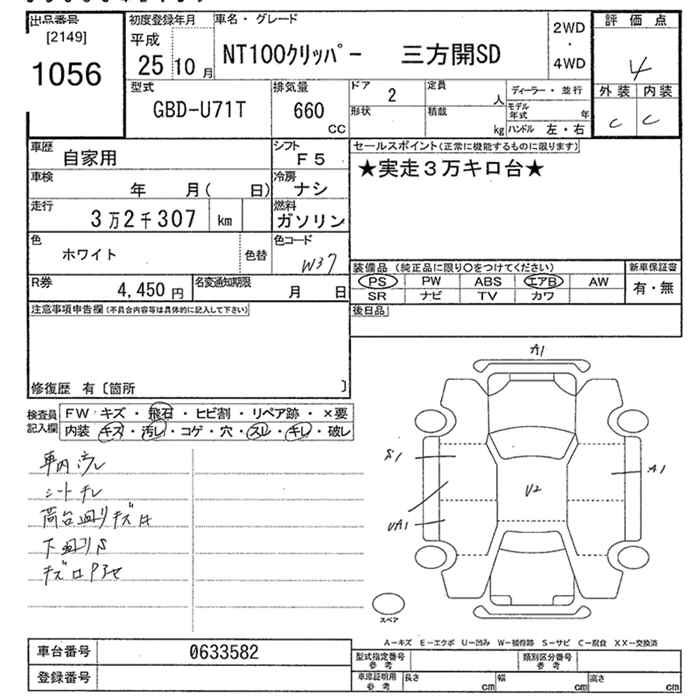 出品番号
[2149]
1056
初度登録年月
平成
25 10 月
車名・グレード
NT100クリッパー 三方開SD
2WD
・
4WD
評価点
4
外装 内装
C C
型式
GBD-U71T
排気量
660
CC
ドア 2
形状
定員 人
積載 kg
ディーラー・並行
モデル年式 年
ハンドル 左・右
車歴 自家用
シフト F5
セールスポイント(正常に機能するものに限ります)
★実走3万キロ台★
車検 年 月( 日)
冷房 ナシ
走行 3万2千307 km
燃料 ガソリン
色 ホワイト 色替
色コード W37
R券 4,450 円
名変通知期限 月 日
装備品(純正品に限り○をつけてください)
PS PW ABS エアB AW
SR ナビ TV カワ
新車保証書
有・無
注意事項申告欄(不具合内容等は具体的に記入して下さい)
後日品
修復歴 有〔箇所 〕
検査員記入欄
FW キズ・飛石・ヒビ割・リペア跡・×要
内装 キズ・汚レ・コゲ・穴・スレ・キレ・破レ
車内汚レ
シートキレ
荷台廻りキズ
下廻りS
A1
S1
A1
UA1
U2
スペア
A−キズ E−エクボ U−凹み W−補修跡 S−サビ C−腐食 XX−交換済
車台番号 0633582
登録番号
型式指定番号 参考
類別区分番号 参考
車庫証明用 参考
長さ cm 幅 cm 高さ cm